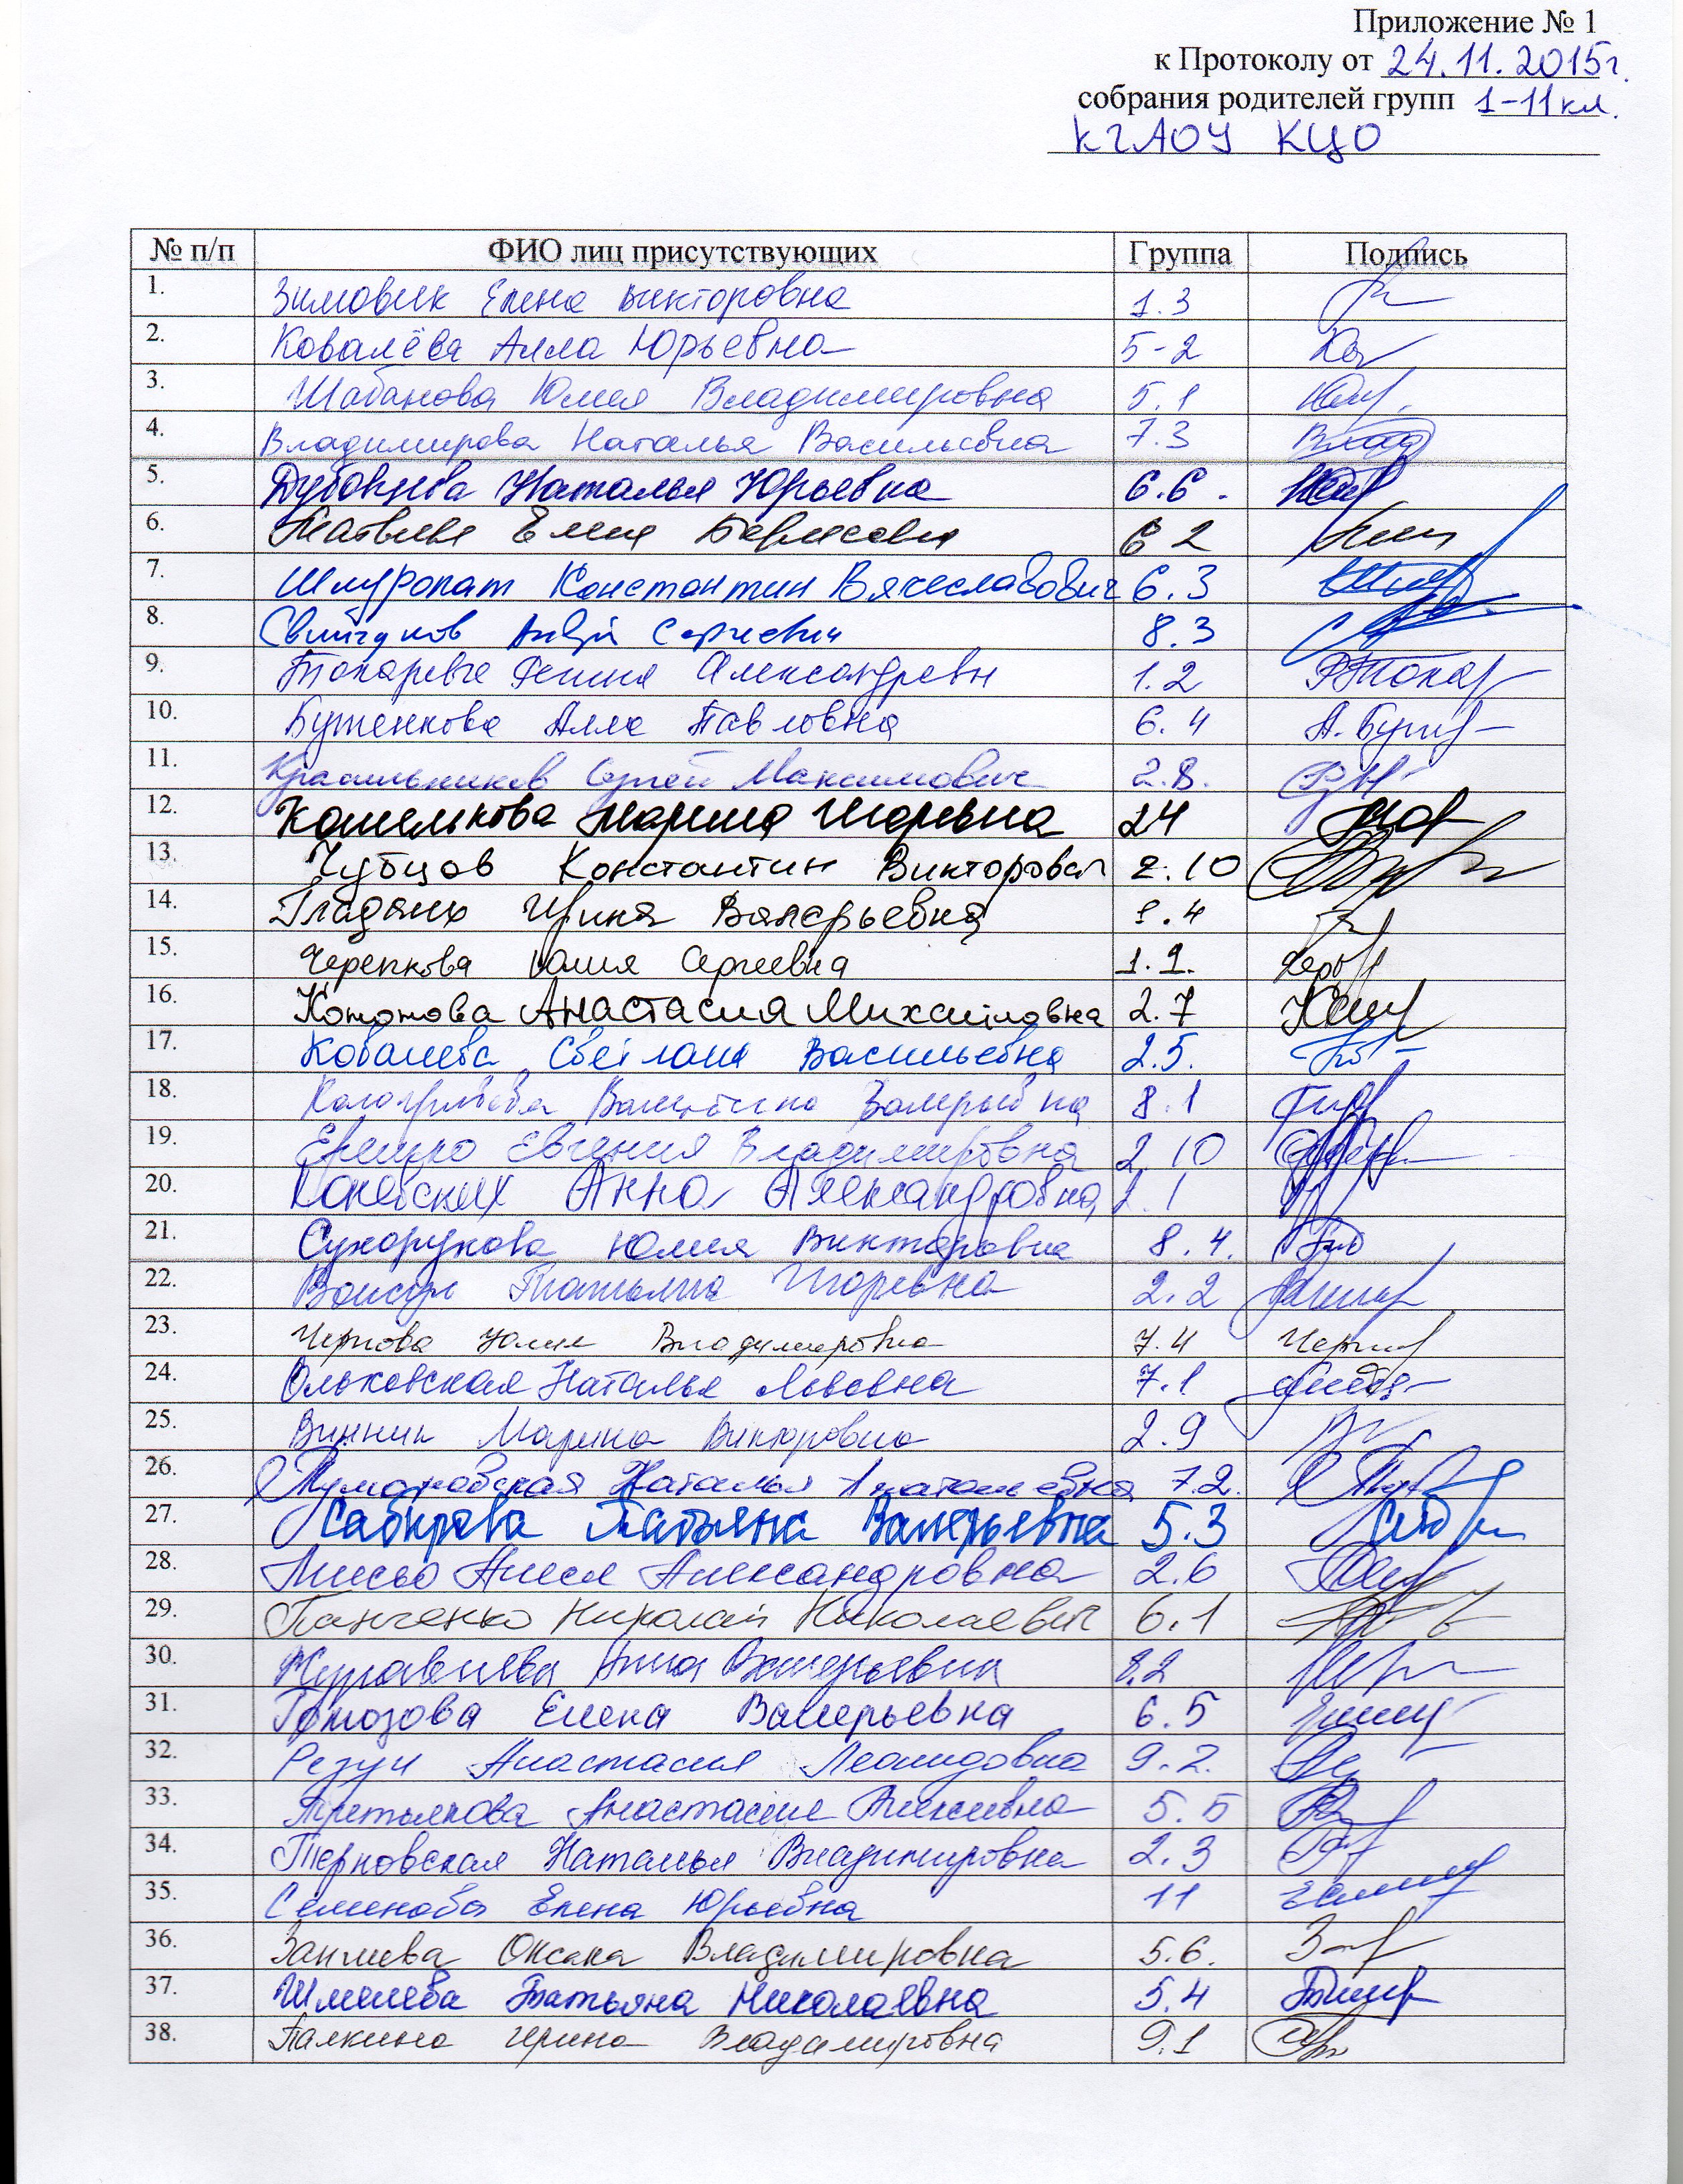 Приложение № 1
к Протоколу от 24.11.2015г.
собрания родителей групп 1-11кл.
КГАОУ КЦО
№ п/п ФИО лиц присутствующих Группа Подпись
1. Зимовик Елена Викторовна 1.3
2. Ковалёва Алла Юрьевна 5-2
3. Шабанова Юлия Владимировна 5.1
4. Владимирова Наталья Васильевна 7.3
5. Наталья Юрьевна 6.6.
6. Елена Борисовна 6 2
7. Шкуропат Константин Вячеславович 6.3
8. Сергеевич 8.3
9. 1.2
10. Бутенкова Алла Павловна 6.4
11. Красильников Сергей Максимович 2.8.
12. Кошелькова Марина Игоревна 24
13. Чубцов Константин Викторович 2.10
14. Гладких Ирина Валерьевна 1.4
15. Черепкова Юлия Сергеевна 1.1.
16. Кононова Анастасия Михайловна 2.7
17. Ковалева Светлана Васильевна 2.5.
18. Валентина Валерьевна 8.1
19. Евгения Владимировна 2.10
20. Анна Александровна 2.1
21. Сухорукова Юлия Викторовна 8.4.
22. Татьяна Игоревна 2.2
23. Чернова Юлия Владимировна 7.4
24. Ольховская Наталья Львовна 7.1
25. Винник Марина Викторовна 2.9
26. Наталья Анатольевна 7.2.
27. Сабирова Татьяна Валерьевна 5.3
28. Александровна 2.6
29. Панченко Николай Николаевич 6.1
30. Анна Валерьевна 8.2
31. Елена Валерьевна 6.5
32. Резун Анастасия Леонидовна 9.2.
33. Третьякова Анастасия Алексеевна 5.5
34. Терновская Наталья Владимировна 2.3
35. Семенова Елена Юрьевна 11
36. Оксана Владимировна 5.6.
37. Шмелева Татьяна Николаевна 5.4
38. Палкина Ирина Владимировна 9.1